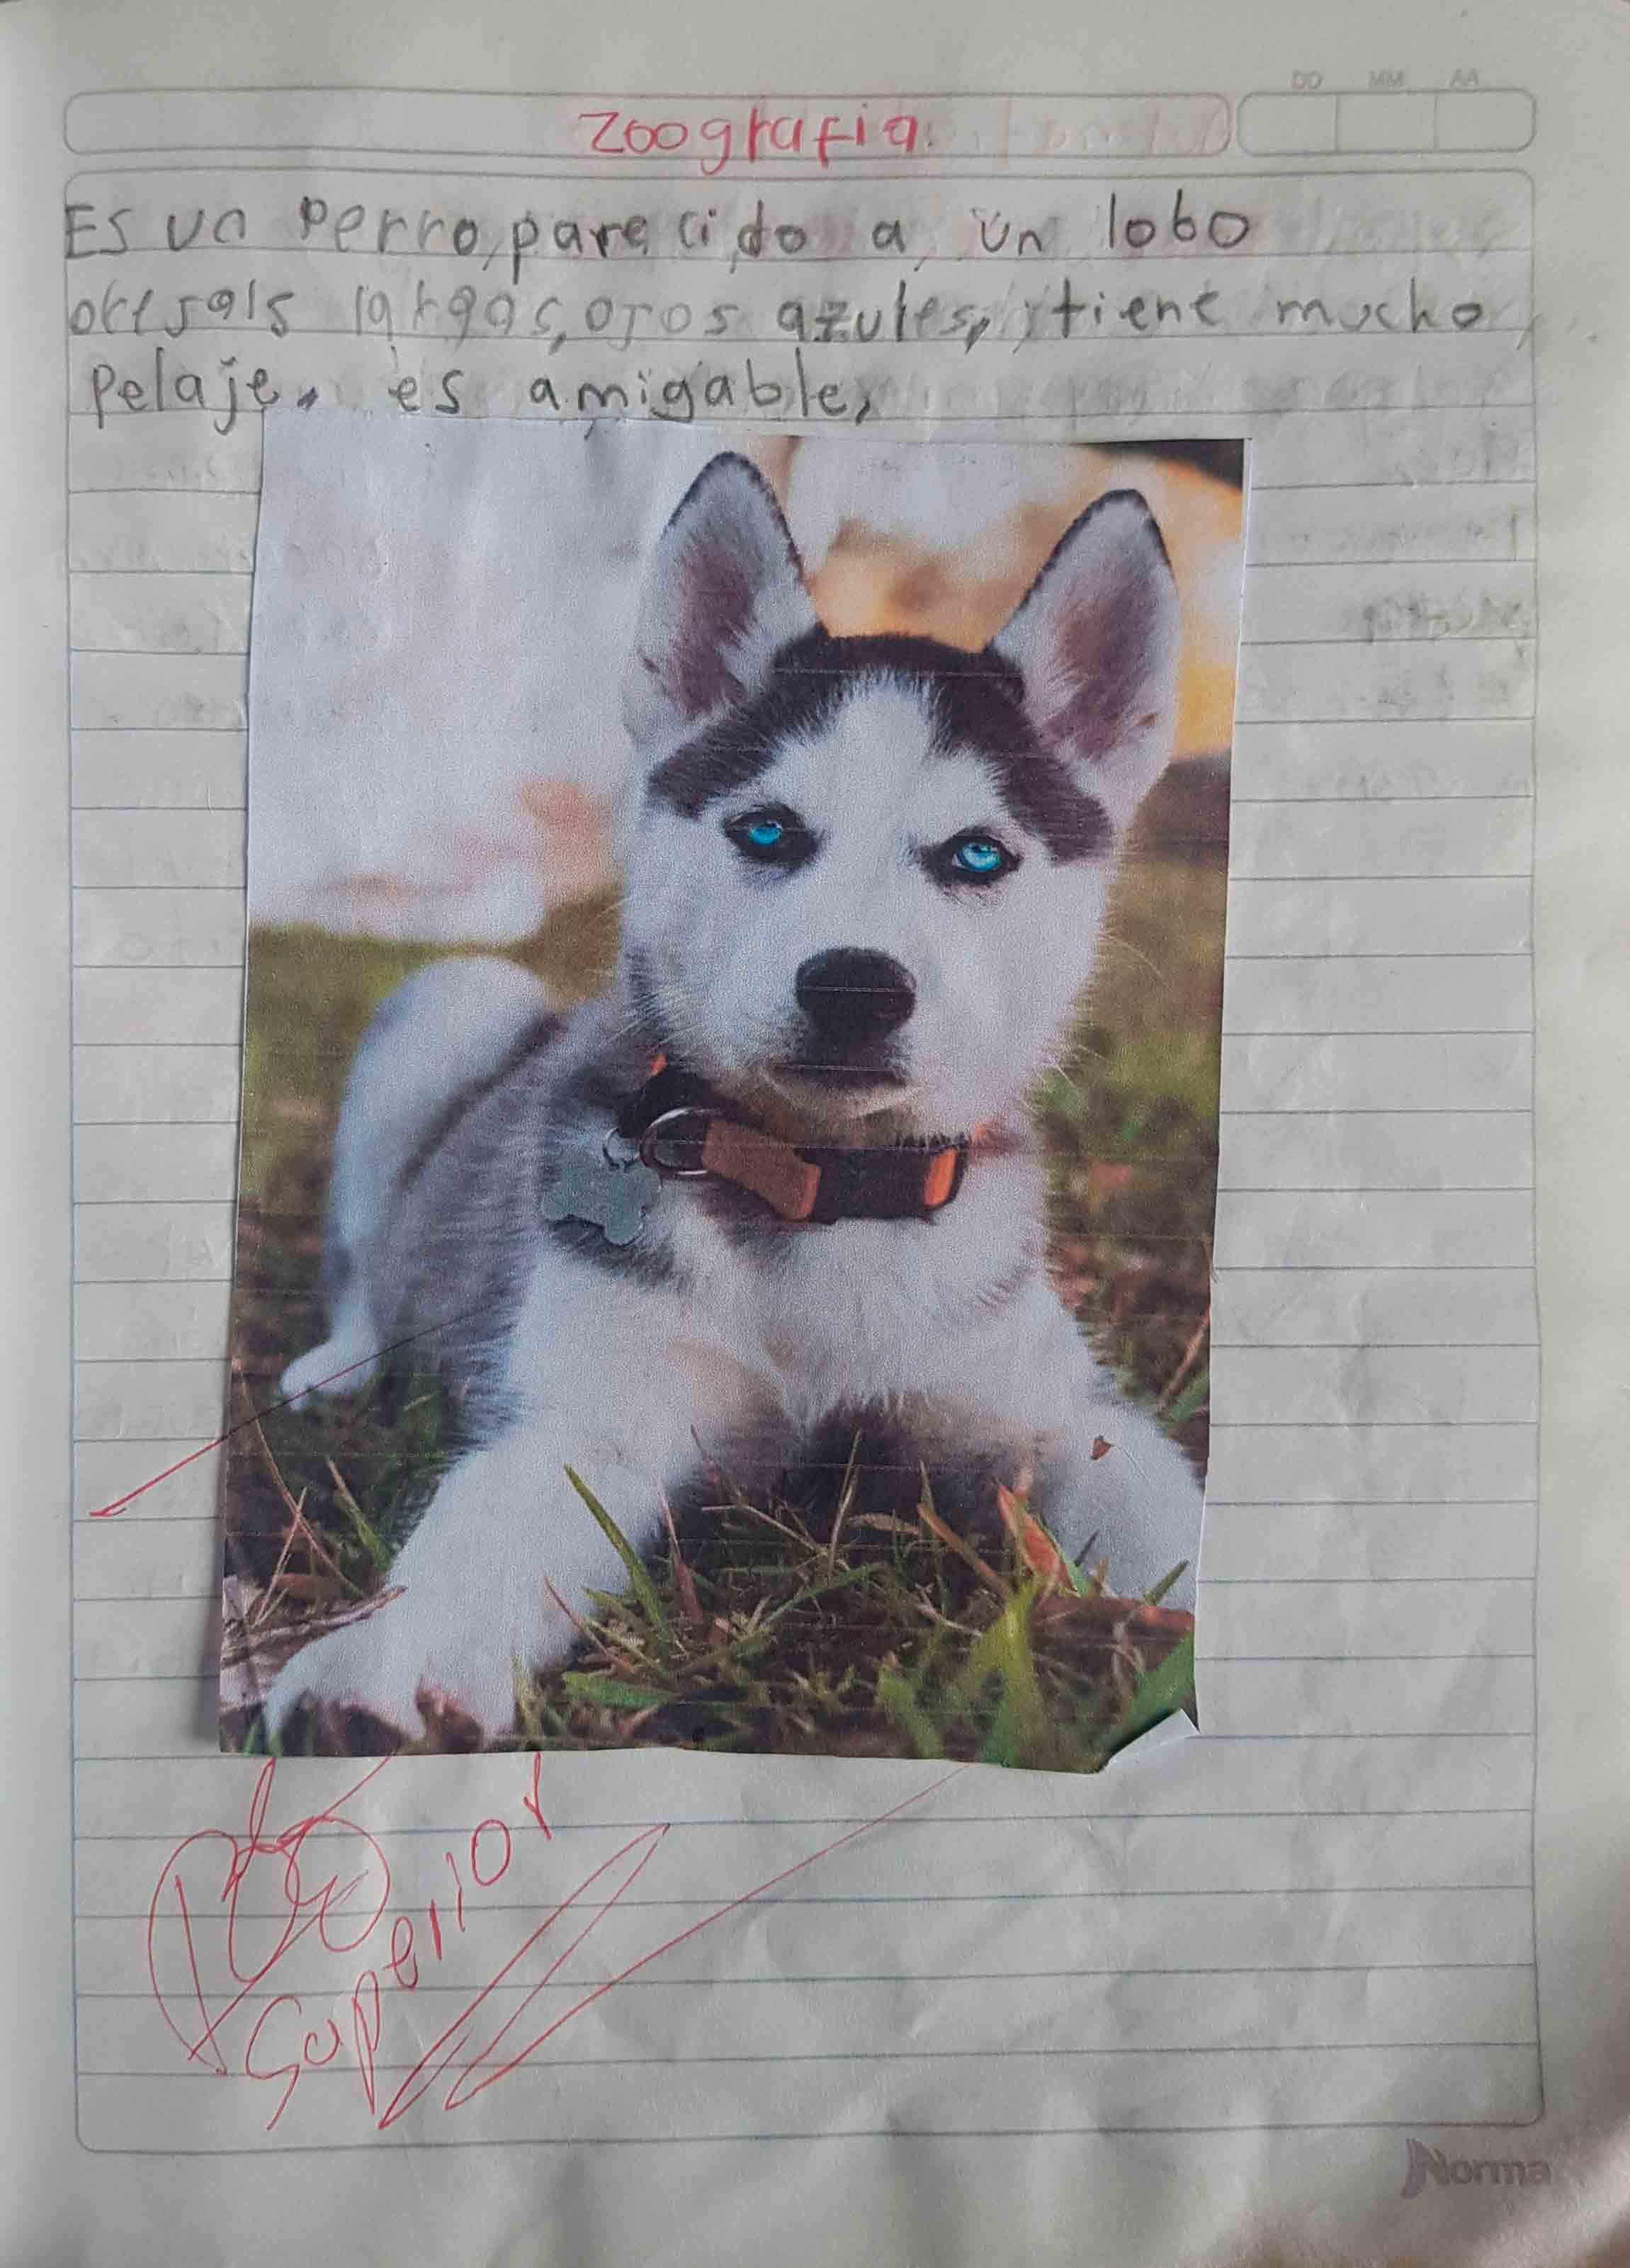 DD MM AA
Zoografia
Es un perro, parecido a un lobo
oresals largas, ojos azules, tiene mucho
pelaje, es amigable,
Superior
Norma